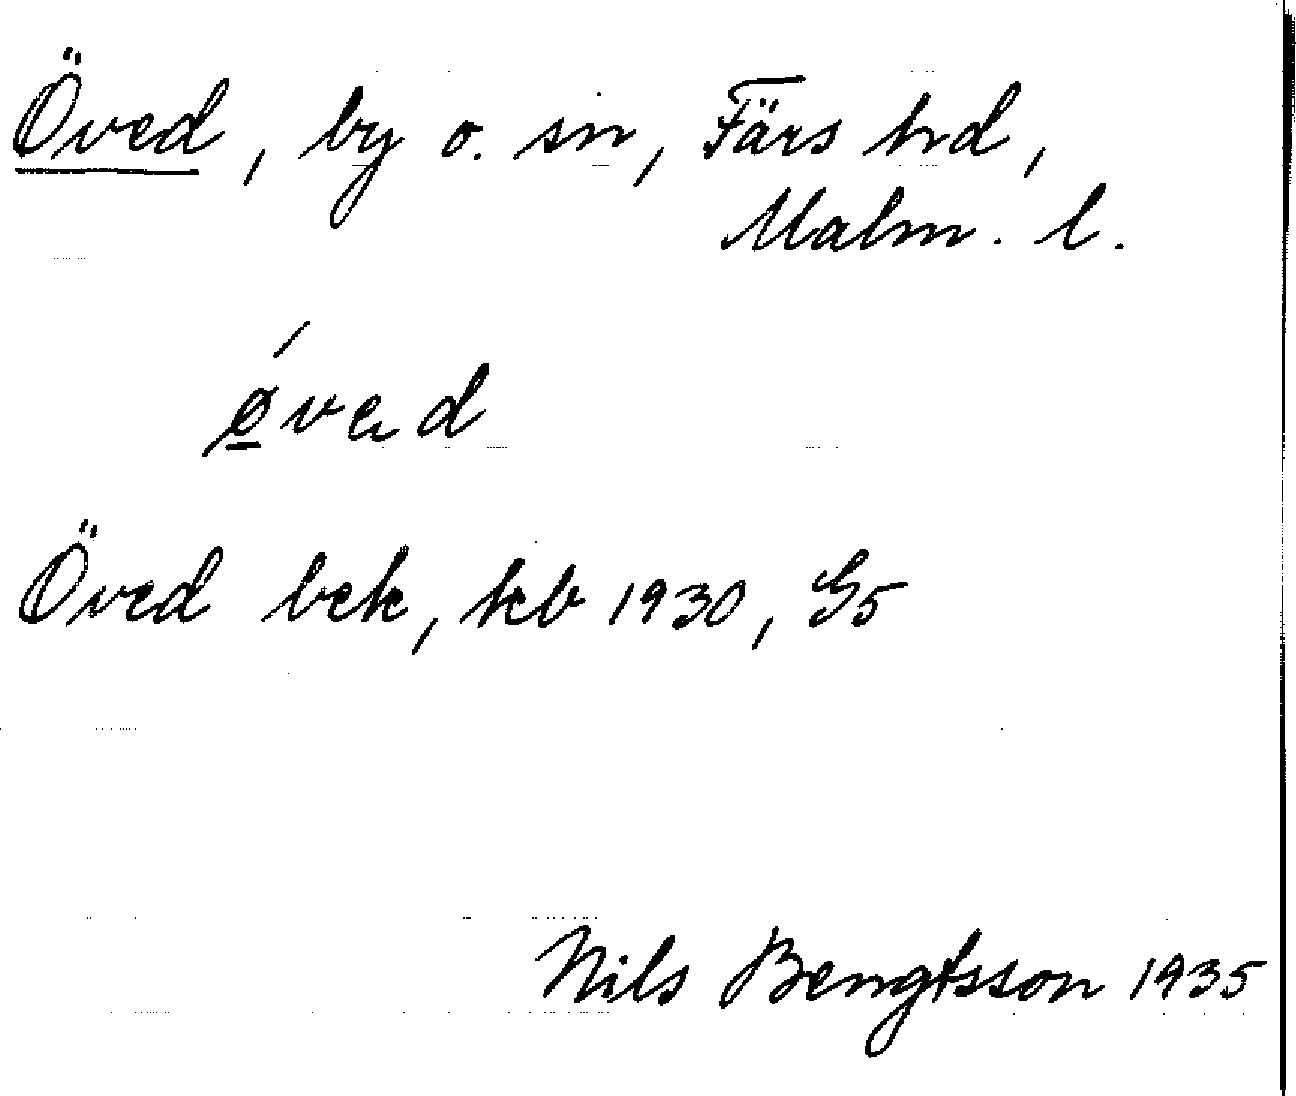 Öved, by o. sn, Färs hd,
Malm. l.
ǿ̲ved
Öved bek, kb 1930, G5
Nils Bengtsson 1935